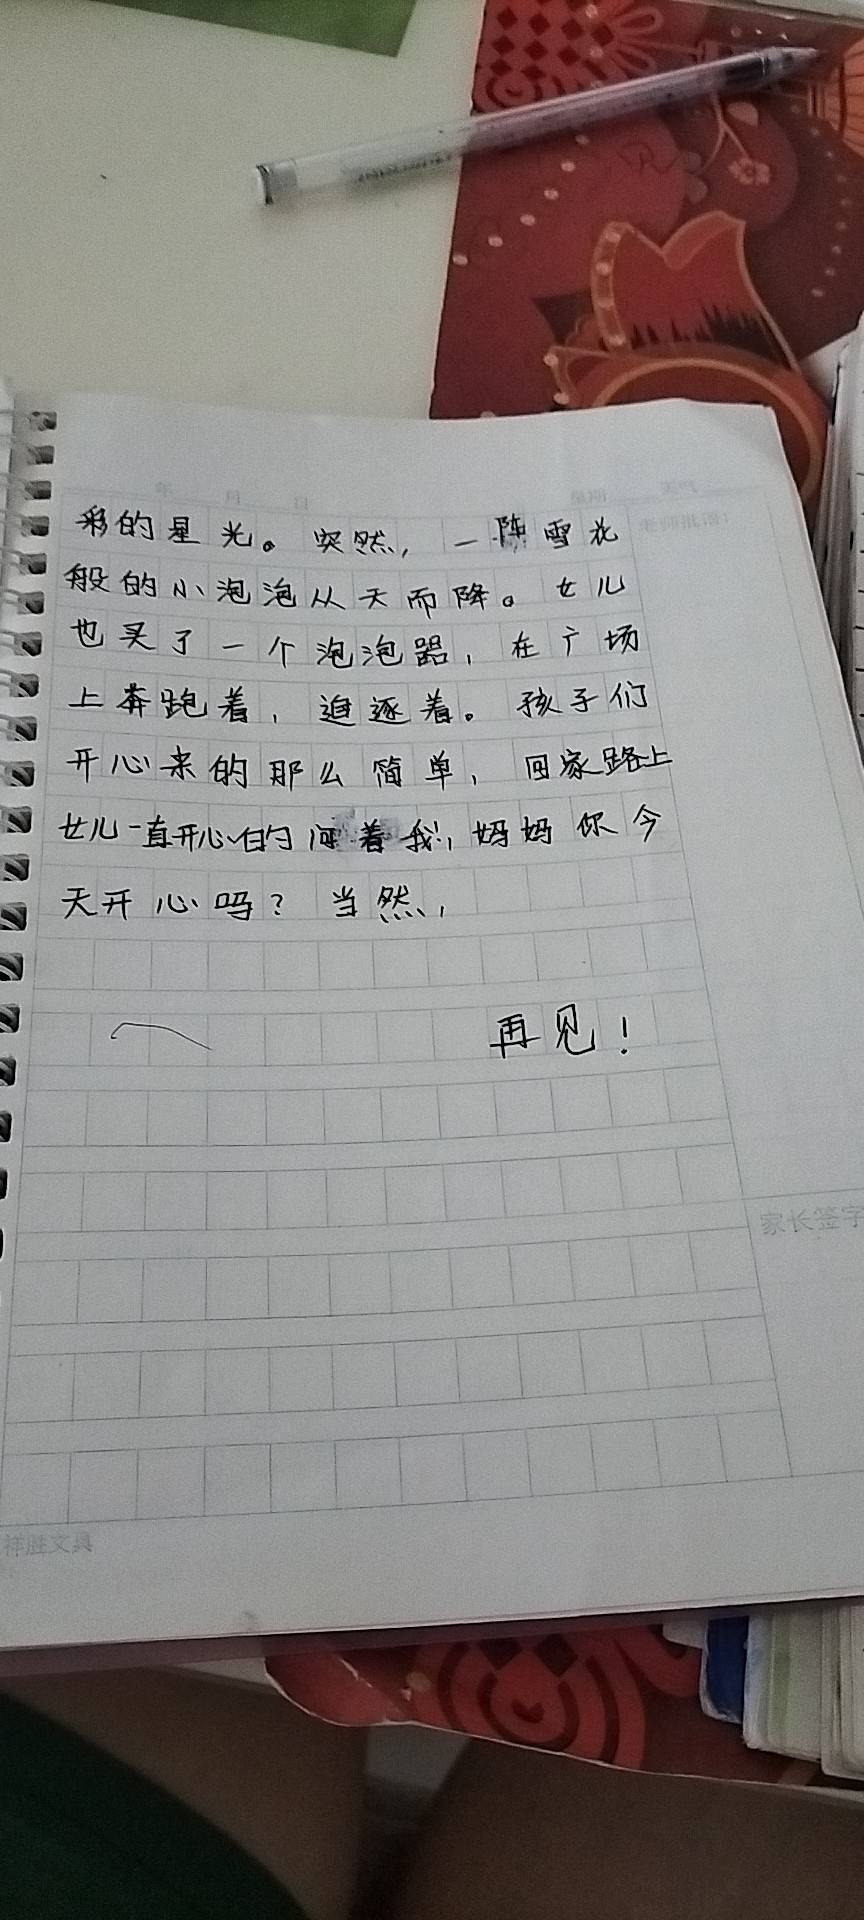 年 月 日 星期 天气
老师批语：
彩的星光。突然，一阵雪花
般的小泡泡从天而降。女儿
也买了一个泡泡器，在广场
上奔跑着，追逐着。孩子们
开心来的那么简单，回家路上
女儿一直开心的问着我，妈妈你今
天开心吗？当然，
再见！
家长签字
祥胜文具